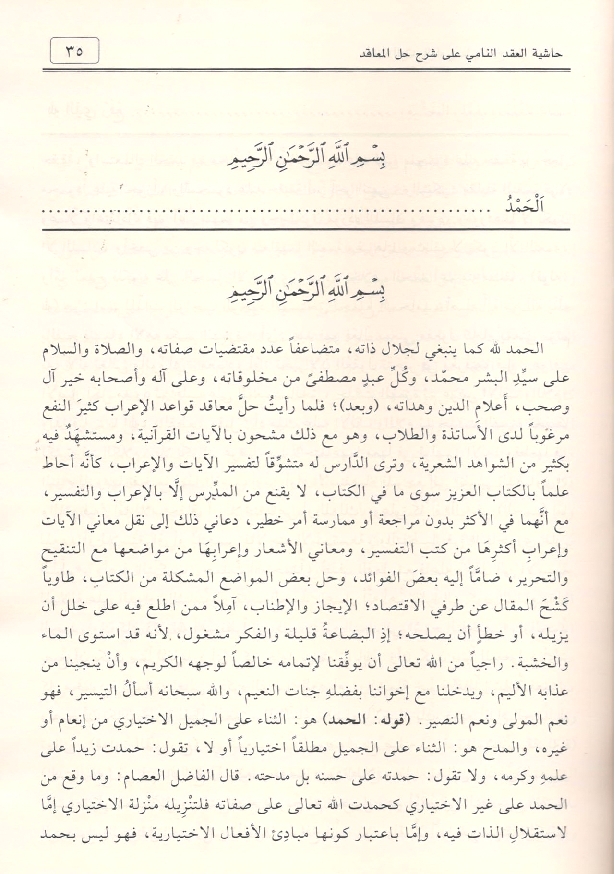 حاشية العقد النامي على شرح حل المعاقد
٣٥
بِسْمِ ٱللَّهِ ٱلرَّحْمَٰنِ ٱلرَّحِيمِ
اَلْحَمْدُ ............................................................
بِسْمِ ٱللَّهِ ٱلرَّحْمَٰنِ ٱلرَّحِيمِ
الحمد لله كما ينبغي لجلال ذاته، متضاعفاً عدد مقتضيات صفاته، والصلاة والسلام
على سيِّدِ البشر محمّد، وكُلِّ عبدٍ مصطفىً من مخلوقاته، وعلى آله وأصحابه خير آل
وصحب، أَعلامِ الدين وهداته، (وبعد)؛ فلما رأيتُ حلَّ معاقد قواعد الإعراب كثيرَ النفع
مرغوباً لدى الأساتذة والطلاب، وهو مع ذلك مشحون بالآيات القرآنية، ومستشهَدٌ فيه
بكثير من الشواهد الشعرية، وترى الدَّارس له متشوِّقاً لتفسير الآيات والإعراب، كأنَّه أحاط
علماً بالكتاب العزيز سوى ما في الكتاب، لا يقنع من المدِّرس إلَّا بالإعراب والتفسير،
مع أنَّهما في الأكثر بدون مراجعة أو ممارسة أمر خطير، دعاني ذلك إلى نقل معاني الآيات
وإعرابِ أكثرِهَا من كتب التفسير، ومعاني الأشعار وإعرابِهَا من مواضعها مع التنقيح
والتحرير، ضامَّاً إليه بعضَ الفوائد، وحل بعض المواضع المشكلة من الكتاب، طاوياً
كَشْحَ المقال عن طرفي الاقتصاد؛ الإيجاز والإطناب، آمِلاً ممن اطلع فيه على خلل أن
يزيله، أو خطأٍ أن يصلحه؛ إذِ البضاعةُ قليلة والفكر مشغول، لأنه قد استوى الماء
والخشبة. راجياً من الله تعالى أن يوفِّقنا لإتمامه خالصاً لوجهه الكريم، وأنْ ينجينا من
عذابه الأليم، ويدخلنا مع إخواننا بفضلهِ جنات النعيم، والله سبحانه أسألُ التيسير، فهو
نعم المولى ونعم النصير. (قوله: الحمد) هو: الثناء على الجميل الاختياري من إنعام أو
غيره، والمدح هو: الثناء على الجميل مطلقاً اختيارياً أو لا، تقول: حمدت زيداً على
علمهِ وكرمه، ولا تقول: حمدته على حسنه بل مدحته. قال الفاضل العصام: وما وقع من
الحمد على غير الاختياري كحمدت الله تعالى على صفاته فلتنْزِيله منْزلة الاختياري إمَّا
لاستقلالِ الذات فيه، وإمَّا باعتبار كونها مبادِئ الأفعال الاختيارية، فهو ليس بحمد